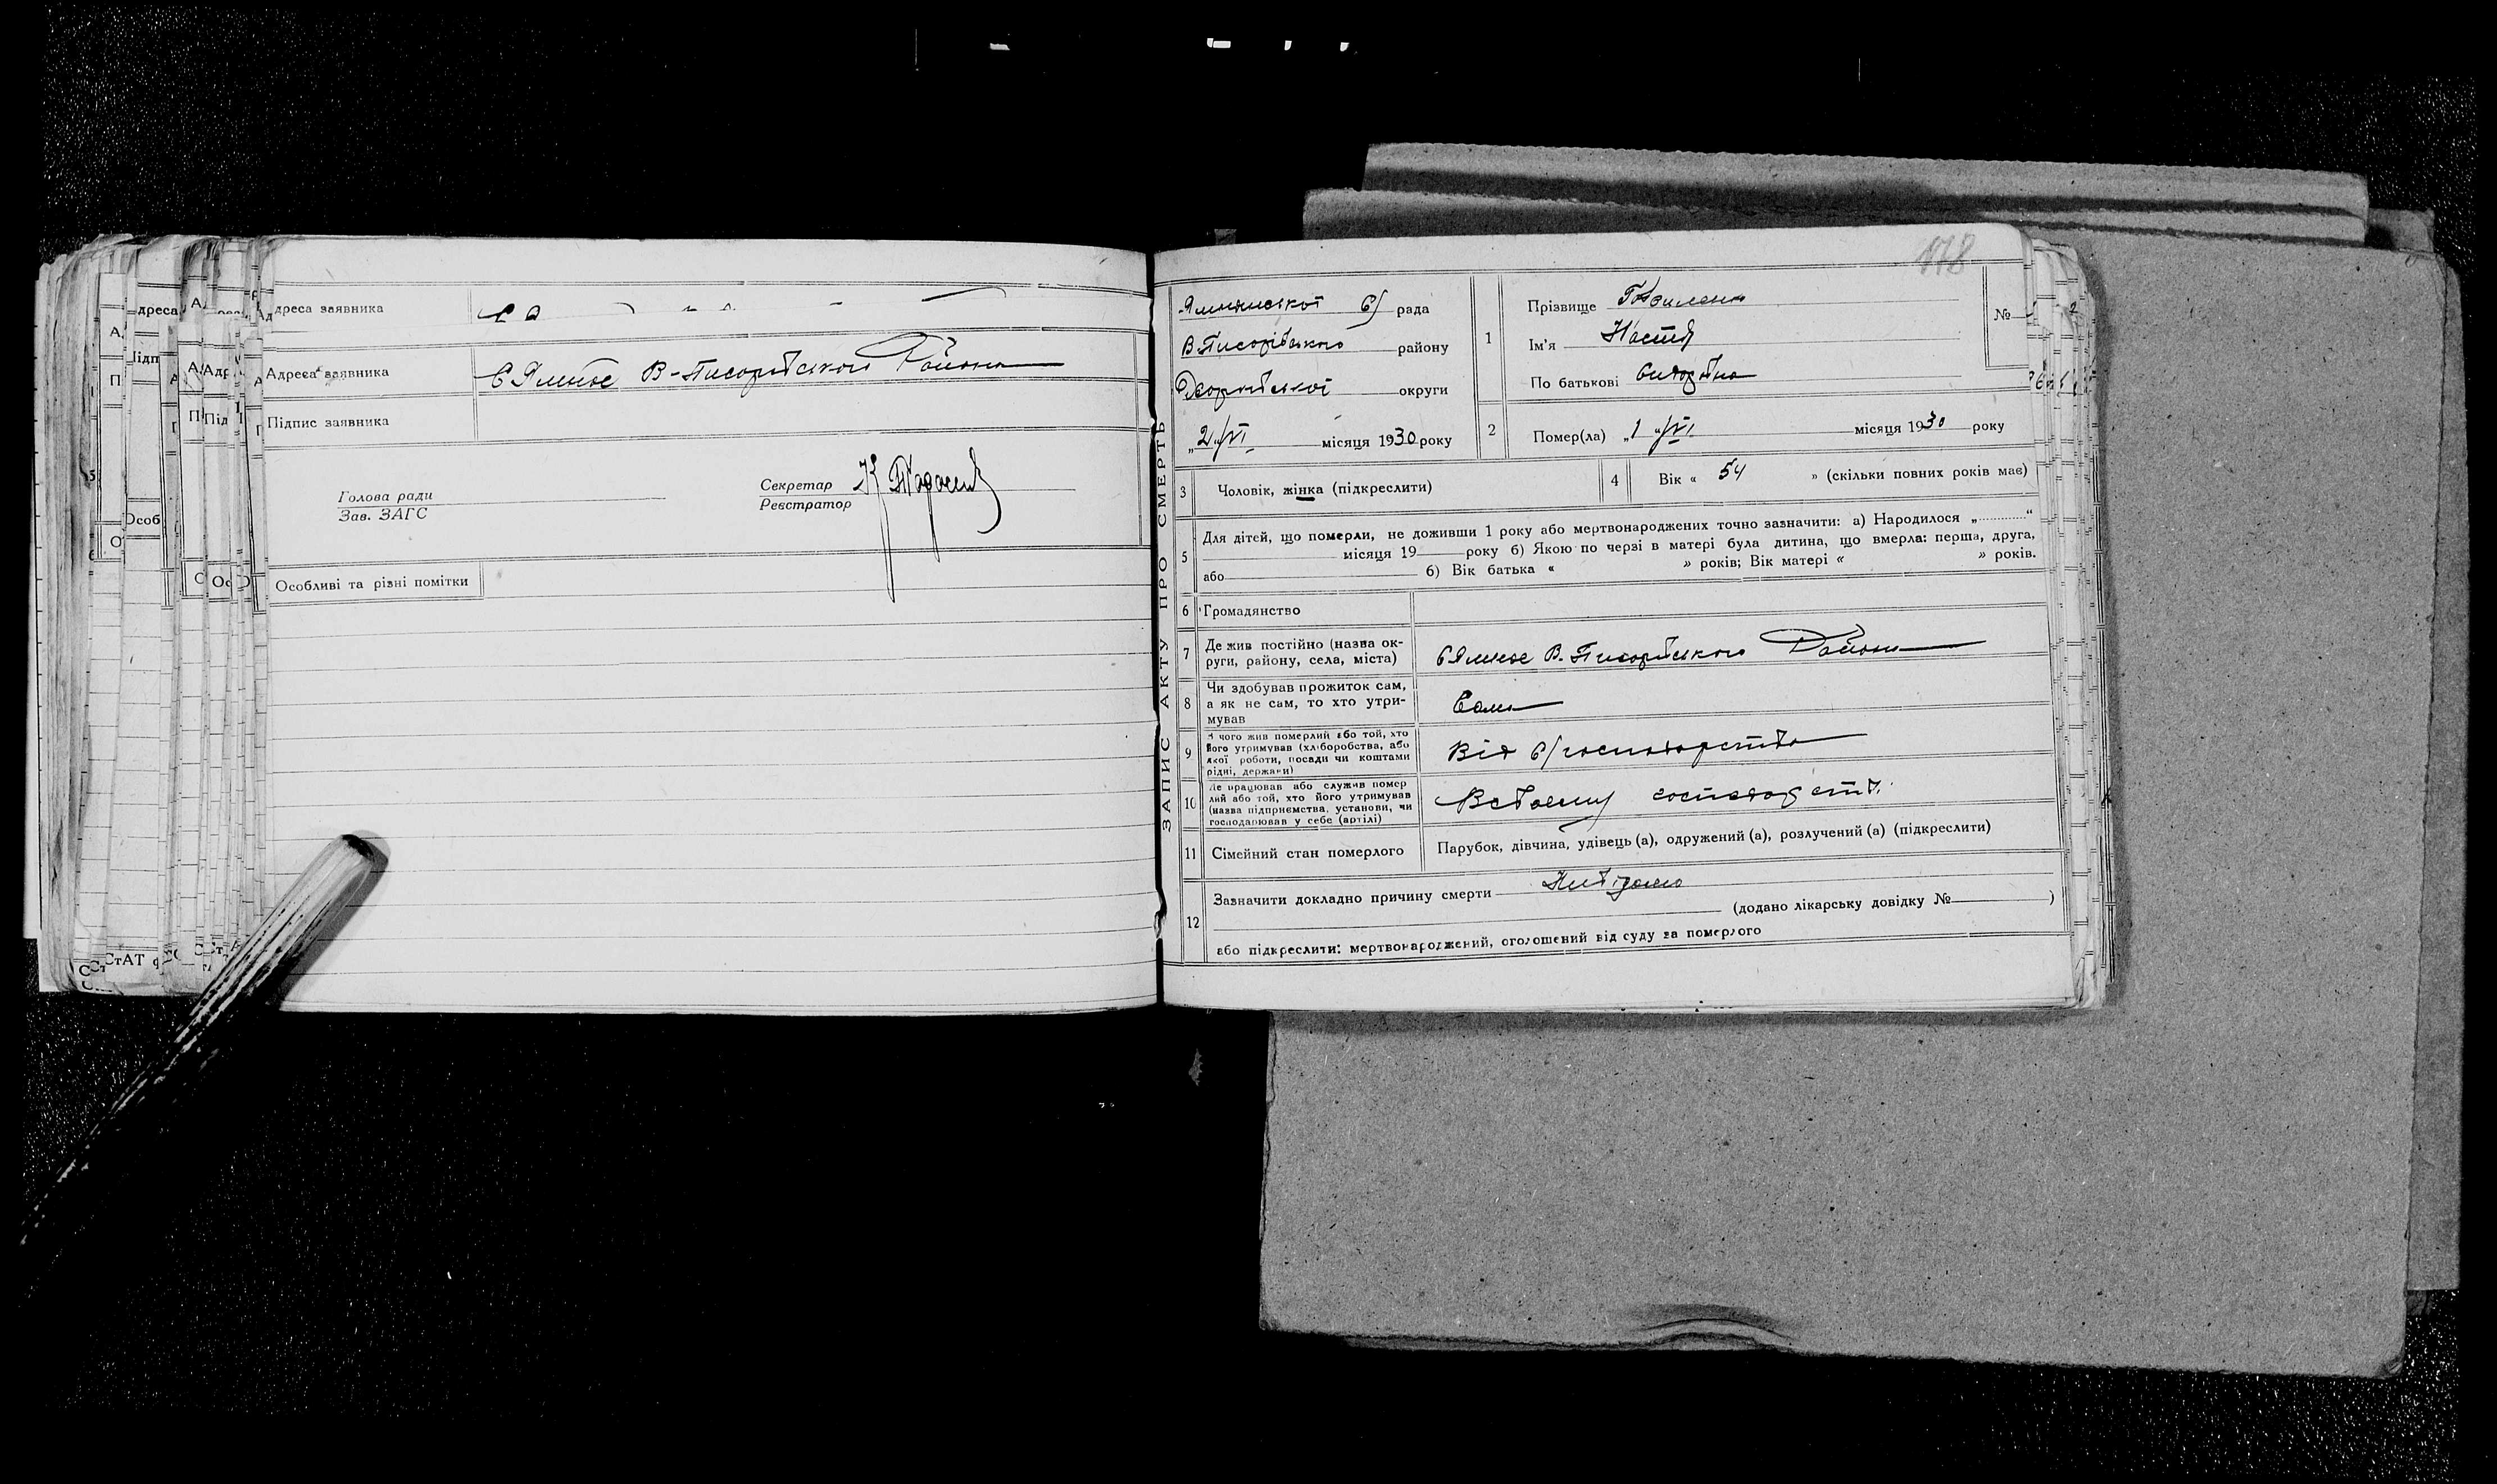 дреса заявника
Адреса заявника С Ямное В-Писарівського Району
Підпис заявника
Голова ради
Зав. ЗАГС
Секретар
Реєстратор
Особливі та різні помітки
178
ЗАПИС АКТУ ПРО СМЕРТЬ
Ямнянської С/ рада
В.Писарівського району
округи
„2"/VI місяця 1930 року
1
Прізвище
Ім'я Настя
По батькові Сидорівна
№
2
Помер(ла) „1"/VI місяця 1930 року
3 Чоловік, жінка (підкреслити)
4 Вік « 54 » (скільки повних років має)
5 Для дітей, що померли, не доживши 1 року або мертвонароджених точно зазначити: а) Народилося „............“
місяця 19 року б) Якою по черзі в матері була дитина, що вмерла: перша, друга,
або б) Вік батька « » років; Вік матері « » років.
6 Громадянство
7 Де жив постійно (назва ок-
руги, району, села, міста) С Ямное В. Писарівського Району
8 Чи здобував прожиток сам,
а як не сам, то хто утри-
мував Сама
9 З чого жив померлий або той, хто
його утримував (хліборобства, або
якої роботи, посади чи коштами
рідні, держави) Від С/господарства
10 Де працював або служив помер
лий або той, хто його утримував
(назва підприємства, установи, чи
господарював у себе (артілі) В своєму господарстві
11 Сімейний стан померлого Парубок, дівчина, удівець (а), одружений (а), розлучений (а) (підкреслити)
12 Зазначити докладно причину смерти Невідомо
(додано лікарську довідку № )
або підкреслити: мертвонароджений, оголошений від суду за померлого